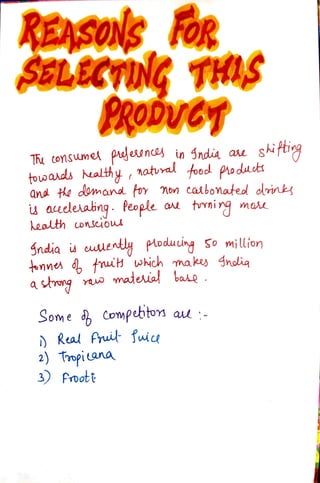 REASONS FOR
SELECTING THIS
PRODUCT
The consumer preferences in India are shifting
towards healthy, natural food products
and the demand for non carbonated drinks
is accelerating. People are turning more
health conscious
India is currently producing 50 million
tonnes of fruits which makes India
a strong raw material base.
Some of competitors are :-
1) Real Fruit Juice
2) Tropicana
3) Frooti